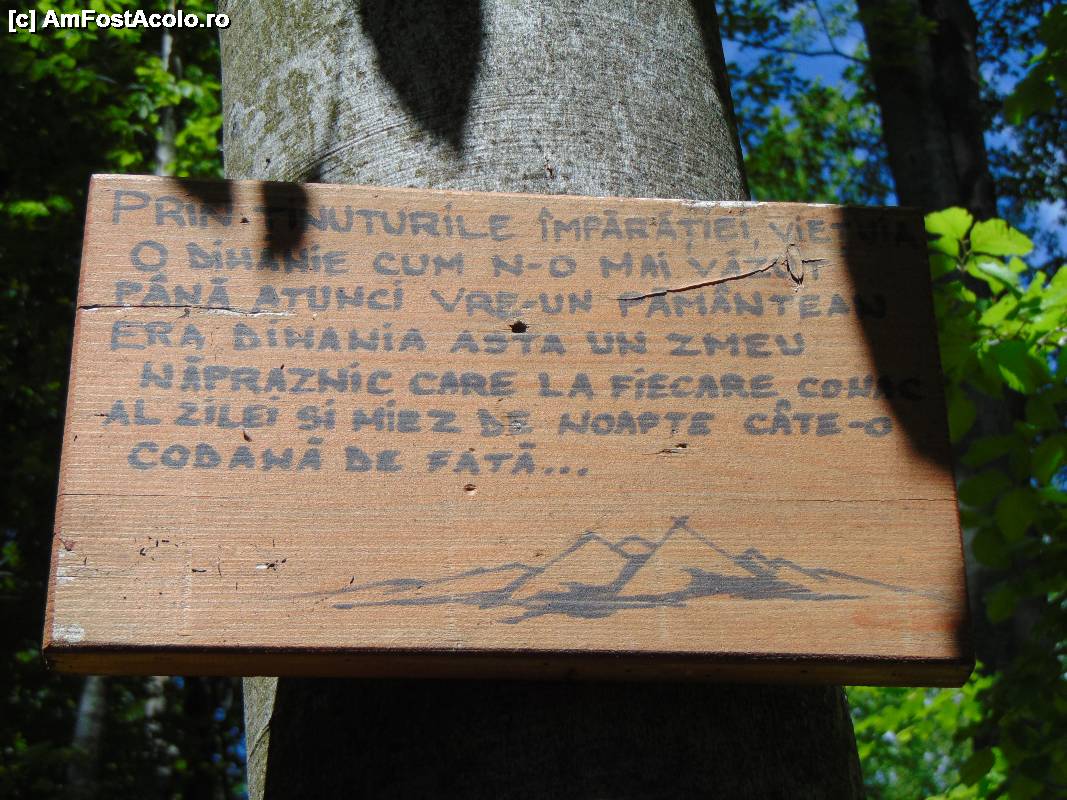 [c] AmFostAcolo.ro
PRIN ȚINUTURILE ÎMPĂRĂȚIEI, VIEȚUIA
O DIHANIE CUM N-O MAI VĂZUT
PÂNĂ ATUNCI VRE-UN PĂMÂNTEAN
ERA DIHANIA ASTA UN ZMEU
NĂPRAZNIC CARE LA FIECARE CONAC
AL ZILEI SI MIEZ DE NOAPTE CÂTE-O
CODANĂ DE FATĂ...